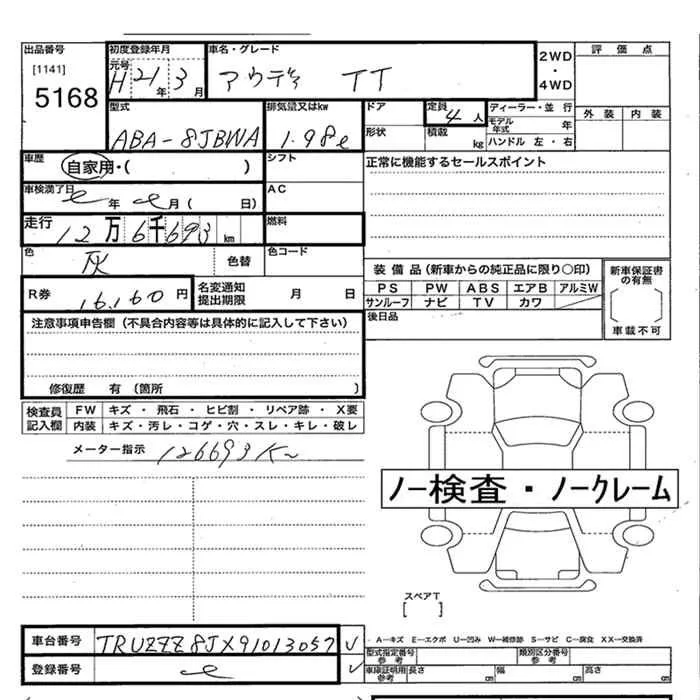 出品番号 初度登録年月 車名・グレード 2WD 評価点
[1141] 元号 H 21年 3月 アウディ TT ・
5168 4WD 外装 内装
型式 排気量又はkw ドア 定員 4人 ディーラー・並行
ABA-8JBWA 1.98ℓ 形状 積載 kg モデル年式 年
ハンドル 左・右
車歴 自家用・( ) シフト 正常に機能するセールスポイント
車検満了日 年 月( 日) AC
走行 12万6千693km 燃料
色 灰 色替 色コード
装備品(新車からの純正品に限り○印) 新車保証書の有無
R券 16,160円 名変通知提出期限 月 日 PS PW ABS エアB アルミW
サンルーフ ナビ TV カワ
注意事項申告欄(不具合内容等は具体的に記入して下さい) 後日品 車載不可
修復歴 有(箇所 )
検査員 FW キズ・飛石・ヒビ割・リペア跡・X要
記入欄 内装 キズ・汚レ・コゲ・穴・スレ・キレ・破レ
メーター指示 126693K
ノー検査・ノークレーム
スペアT
[ ]
A-キズ E-エクボ U-凹み W-補修跡 S-サビ C-腐食 XX-交換済
車台番号 TRUZZZ8JX91013057 型式指定番号 参考 類別区分番号 参考
登録番号 車庫証明用 参考 長さ cm 幅 cm 高さ cm